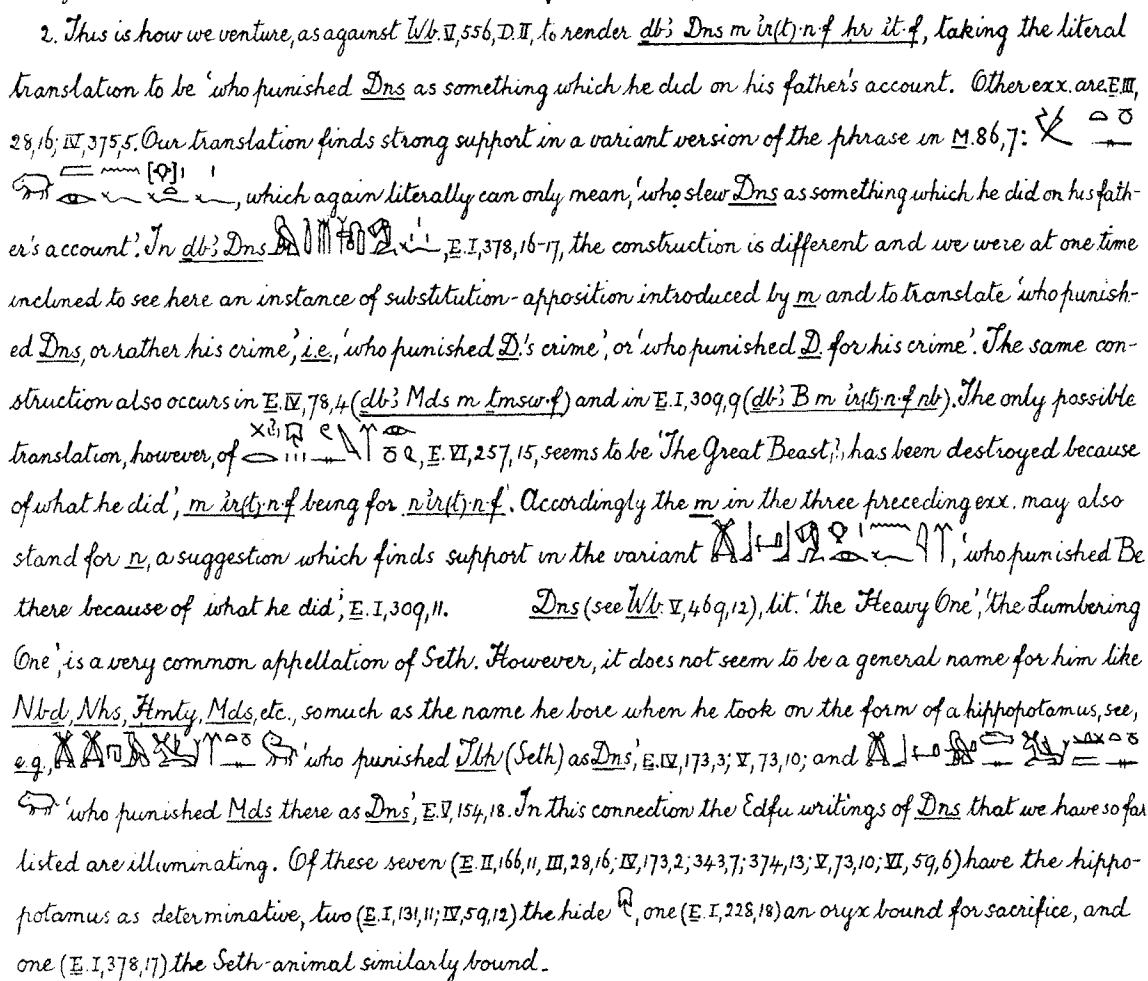 2. This is how we venture, as against Wb. V, 556, D. II, to render dbꜣ Dns m ir(t)·n·f ḥr it·f, taking the literal
translation to be 'who punished Dns as something which he did on his father's account. Other exx. are E. III,
28, 16; IV, 375, 5. Our translation finds strong support in a variant version of the phrase in M. 86, 7:
, which again literally can only mean, 'who slew Dns as something which he did on his fath-
er's account'. In dbꜣ Dns , E. I, 378, 16-17, the construction is different and we were at one time
inclined to see here an instance of substitution-apposition introduced by m and to translate 'who punish-
ed Dns, or rather his crime', i.e., 'who punished D.'s crime', or 'who punished D. for his crime'. The same con-
struction also occurs in E. IV, 78, 4 (dbꜣ Mds m tmsw·f) and in E. I, 309, 9 (dbꜣ B m ir(t)·n·f nb). The only possible
translation, however, of , E. VI, 257, 15, seems to be 'The Great Beast, has been destroyed because
of what he did', m ir(t)·n·f being for n ir(t)·n·f. Accordingly the m in the three preceding exx. may also
stand for n, a suggestion which finds support in the variant , 'who punished Be
there because of what he did', E. I, 309, 11. Dns (see Wb. V, 469, 12), lit. 'the Heavy One', 'the Lumbering
One', is a very common appellation of Seth. However, it does not seem to be a general name for him like
Nbd, Nhs, Ḥmty, Mds, etc., so much as the name he bore when he took on the form of a hippopotamus, see,
e.g., 'who punished Tbh (Seth) as Dns', E. IV, 173, 3; V, 73, 10; and
'who punished Mds there as Dns', E. V, 154, 18. In this connection the Edfu writings of Dns that we have so far
listed are illuminating. Of these seven (E. II, 166, 11, III, 28, 16; IV, 173, 2; 343, 7; 374, 13; V, 73, 10; VI, 59, 6) have the hippo-
potamus as determinative, two (E. I, 131, 11; IV, 59, 12) the hide , one (E. I, 228, 18) an oryx bound for sacrifice, and
one (E. I, 378, 17) the Seth-animal similarly bound.